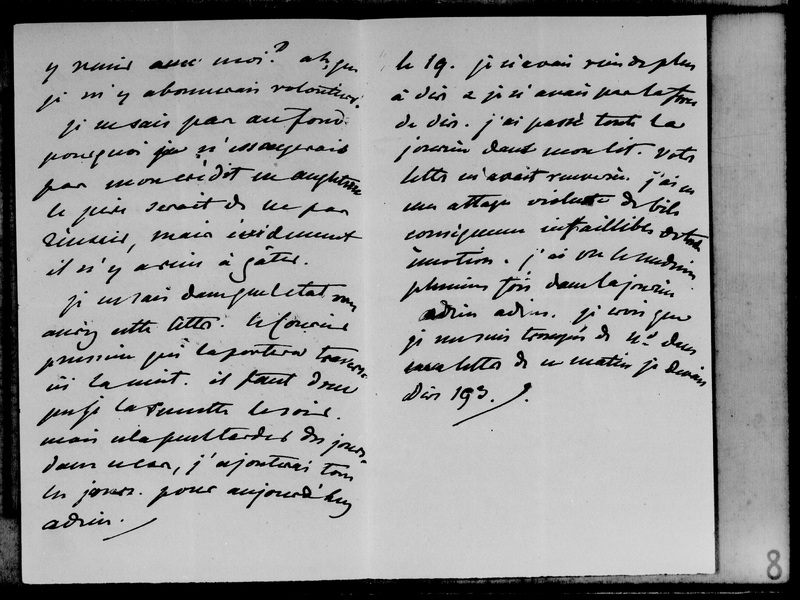 y venir avec moi? ah, que
je m'y abonnerais volontiers.
je ne sais pas au fond
pourquoi je n'essayerais
pas mon crédit en angleterre
le pire serait de ne pas
réussir, mais évidemment
il n'y a rien à gâter.
je ne sais dans quel état vous
aurez cette lettre. le Courrier
prussien qui la portera traverse
ici la nuit. il faut donc
que je la remette le soir.
mais cela peut tarder des jours.
dans ce cas, j'ajouterai tous
les jours. pour aujourd'huy
adieu.
le 19. je n'avais rien de plus
à dire & je n'avais pas la force
de dire. j'ai passé toute la
journée dans mon lit. votre
lettre m'avait renversée. j'ai eu
une attaque violente de bile
conséquence infaillible de toute
émotion. j'ai vu le médecin
plusieurs fois dans la journée
adieu adieu. je crois que
je me suis trompée de No dans
ma lettre de ce matin je devais
dire 193.
8